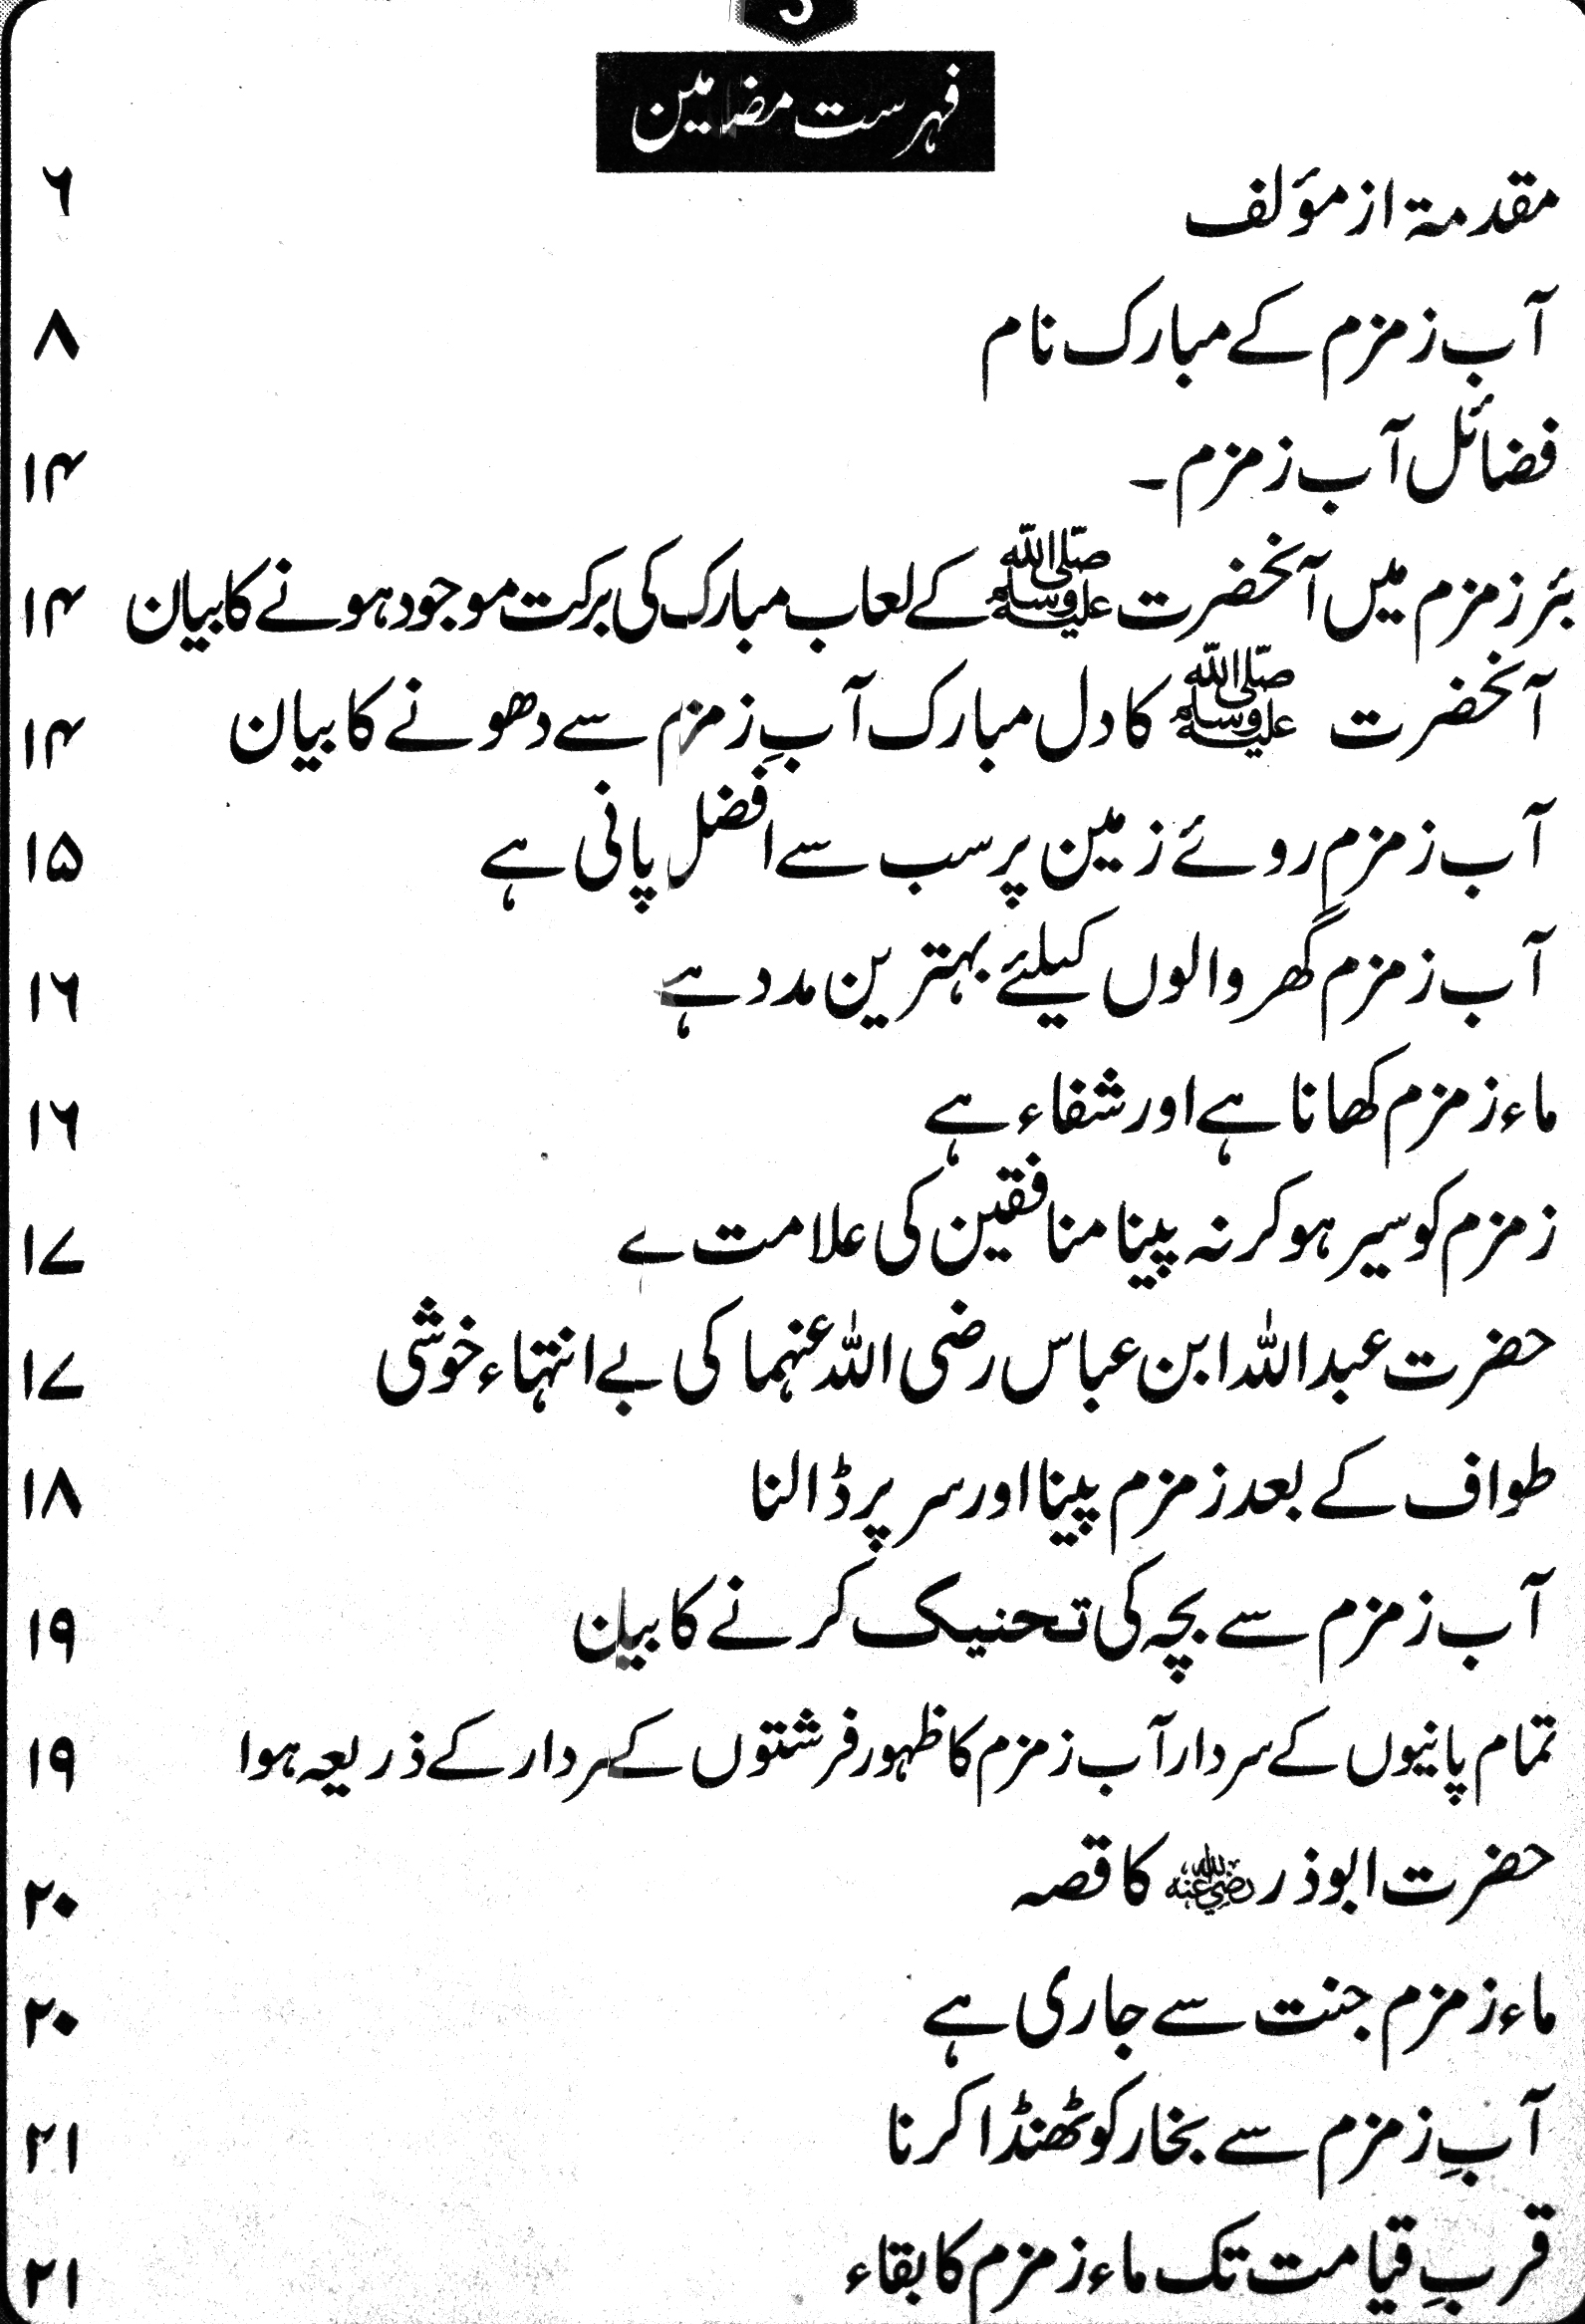 3
فہرست مضامین
مقدمۃ از مؤلف ۶
آب زمزم کے مبارک نام ۸
فضائل آب زمزم۔ ۱۴
بئر زمزم میں آنحضرت ﷺ کے لعاب مبارک کی برکت موجود ہونے کا بیان ۱۴
آنحضرت ﷺ کا دل مبارک آبِ زمزم سے دھونے کا بیان ۱۴
آب زمزم روئے زمین پر سب سے افضل پانی ہے ۱۵
آب زمزم گھر والوں کیلئے بہترین مدد ہے ۱۶
ماء زمزم کھانا ہے اور شفاء ہے ۱۶
زمزم کو سیر ہو کر نہ پینا منافقین کی علامت ے ۱۷
حضرت عبداللہ ابن عباس رضی اللہ عنہما کی بے انتہاء خوشی ۱۷
طواف کے بعد زمزم پینا اور سر پر ڈالنا ۱۸
آب زمزم سے بچہ کی تحنیک کرنے کا بیان ۱۹
تمام پانیوں کے سردار آب زمزم کا ظہور فرشتوں کے سردار کے ذریعہ ہوا ۱۹
حضرت ابوذر رضی اللہ عنہ کا قصہ ۲۰
ماء زمزم جنت سے جاری ہے ۲۰
آبِ زمزم سے بخار کو ٹھنڈا کرنا ۲۱
قربِ قیامت تک ماء زمزم کا بقاء ۲۱